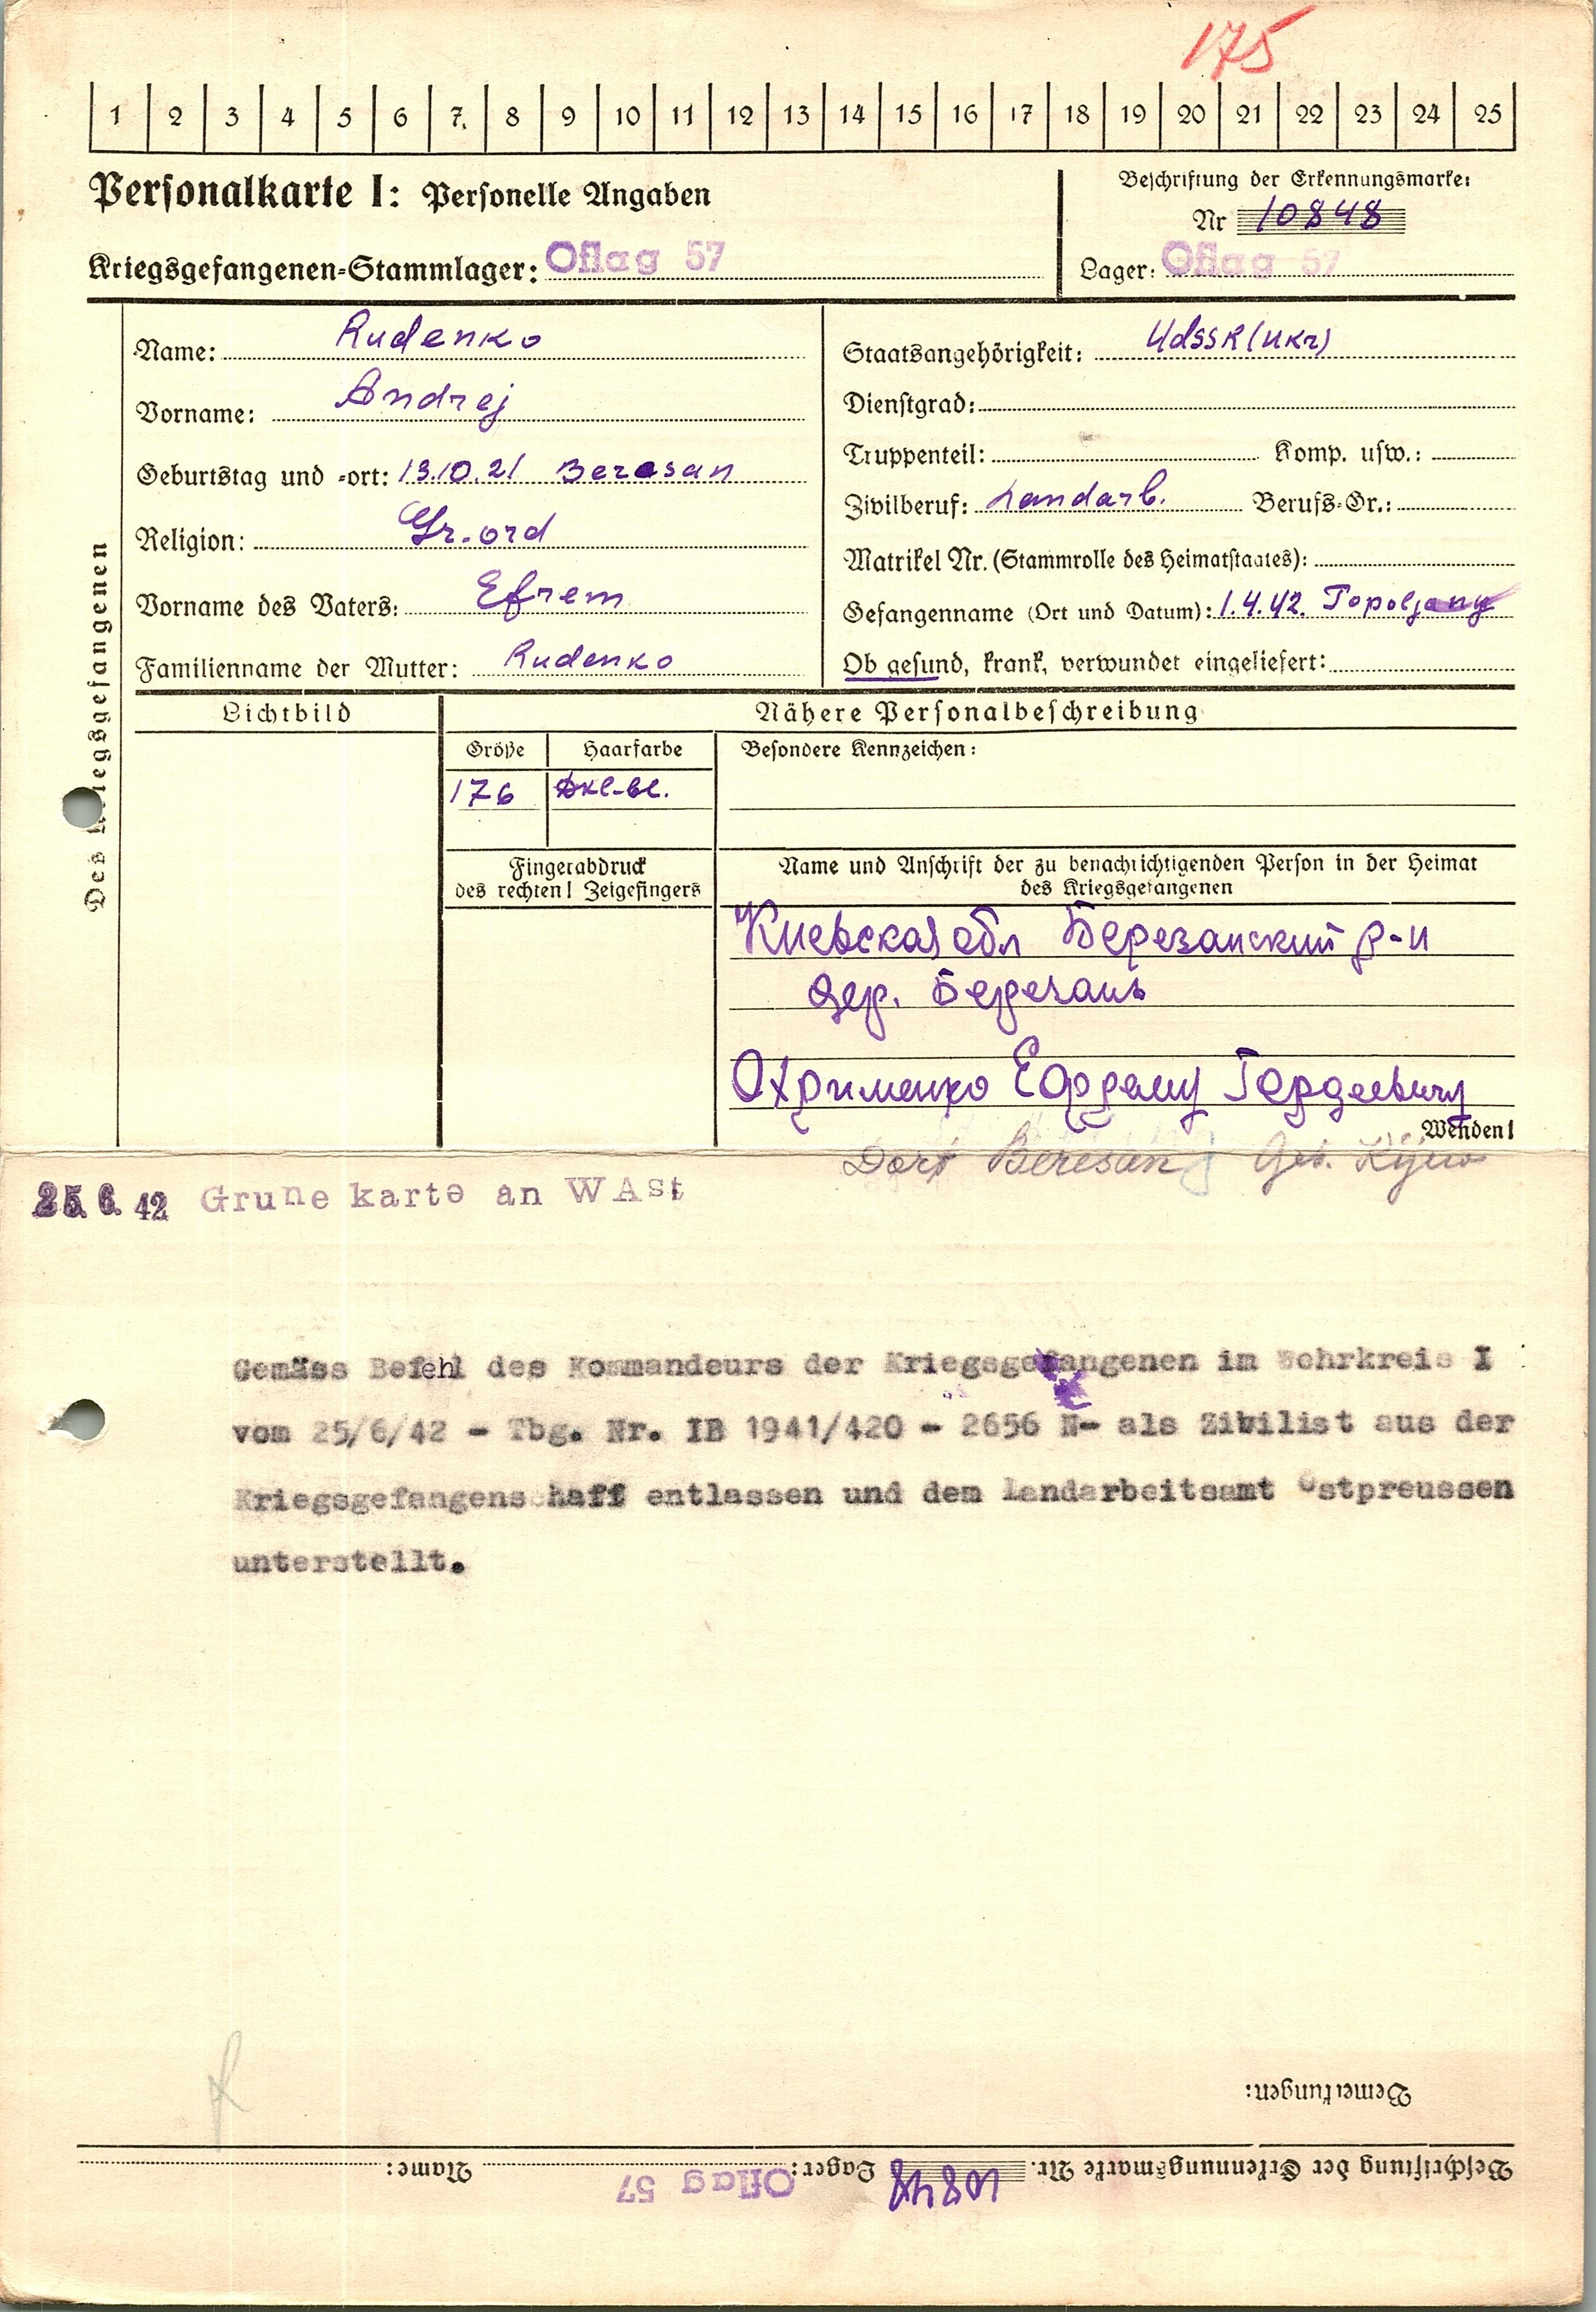 175
1 2 3 4 5 6 7 8 9 10 11 12 13 14 15 16 17 18 19 20 21 22 23 24 25
Personalkarte I: Personelle Angaben
Beschriftung der Erkennungsmarke:
Nr 10848
Kriegsgefangenen-Stammlager: Oflag 57
Lager: Oflag 57
Des Kriegsgefangenen
Name: Rudenko
Vorname: Andrej
Geburtstag und -ort: 13.10.21 Beresan
Religion: Gr. ord
Vorname des Vaters: Efrem
Familienname der Mutter: Rudenko
Staatsangehörigkeit: UdSSR (Ukr)
Dienstgrad:
Truppenteil: Komp. usw.:
Zivilberuf: Landarb. Berufs-Gr.:
Matrikel Nr. (Stammrolle des Heimatstaates):
Gefangenname (Ort und Datum): 1.4.42. Topoljany
Ob gesund, krank, verwundet eingeliefert:
Lichtbild
Nähere Personalbeschreibung
Größe Haarfarbe Besondere Kennzeichen:
176 Dkl-bl.
Fingerabdruck
des rechten! Zeigefingers
Name und Anschrift der zu benachrichtigenden Person in der Heimat
des Kriegsgefangenen
Киевская обл Березанский р-н
дер. Березань
Охрименко Ефрему Гордеевичу
Wenden!
Dorf Beresan Geb. Kijew
25. 6. 42 Grune karte an WASt
Gemäss Befehl des Kommandeurs der Kriegsgefangenen im Wehrkreis I
vom 25/6/42 - Tbg. Nr. IB 1941/420 - 2656 N- als Zivilist aus der
Kriegsgefangenschaff entlassen und dem Landarbeitsamt Ostpreussen
unterstellt.
Bemerkungen:
Beschriftung der Erkennungsmarke Nr. 10848 Lager: Oflag 57 Name: